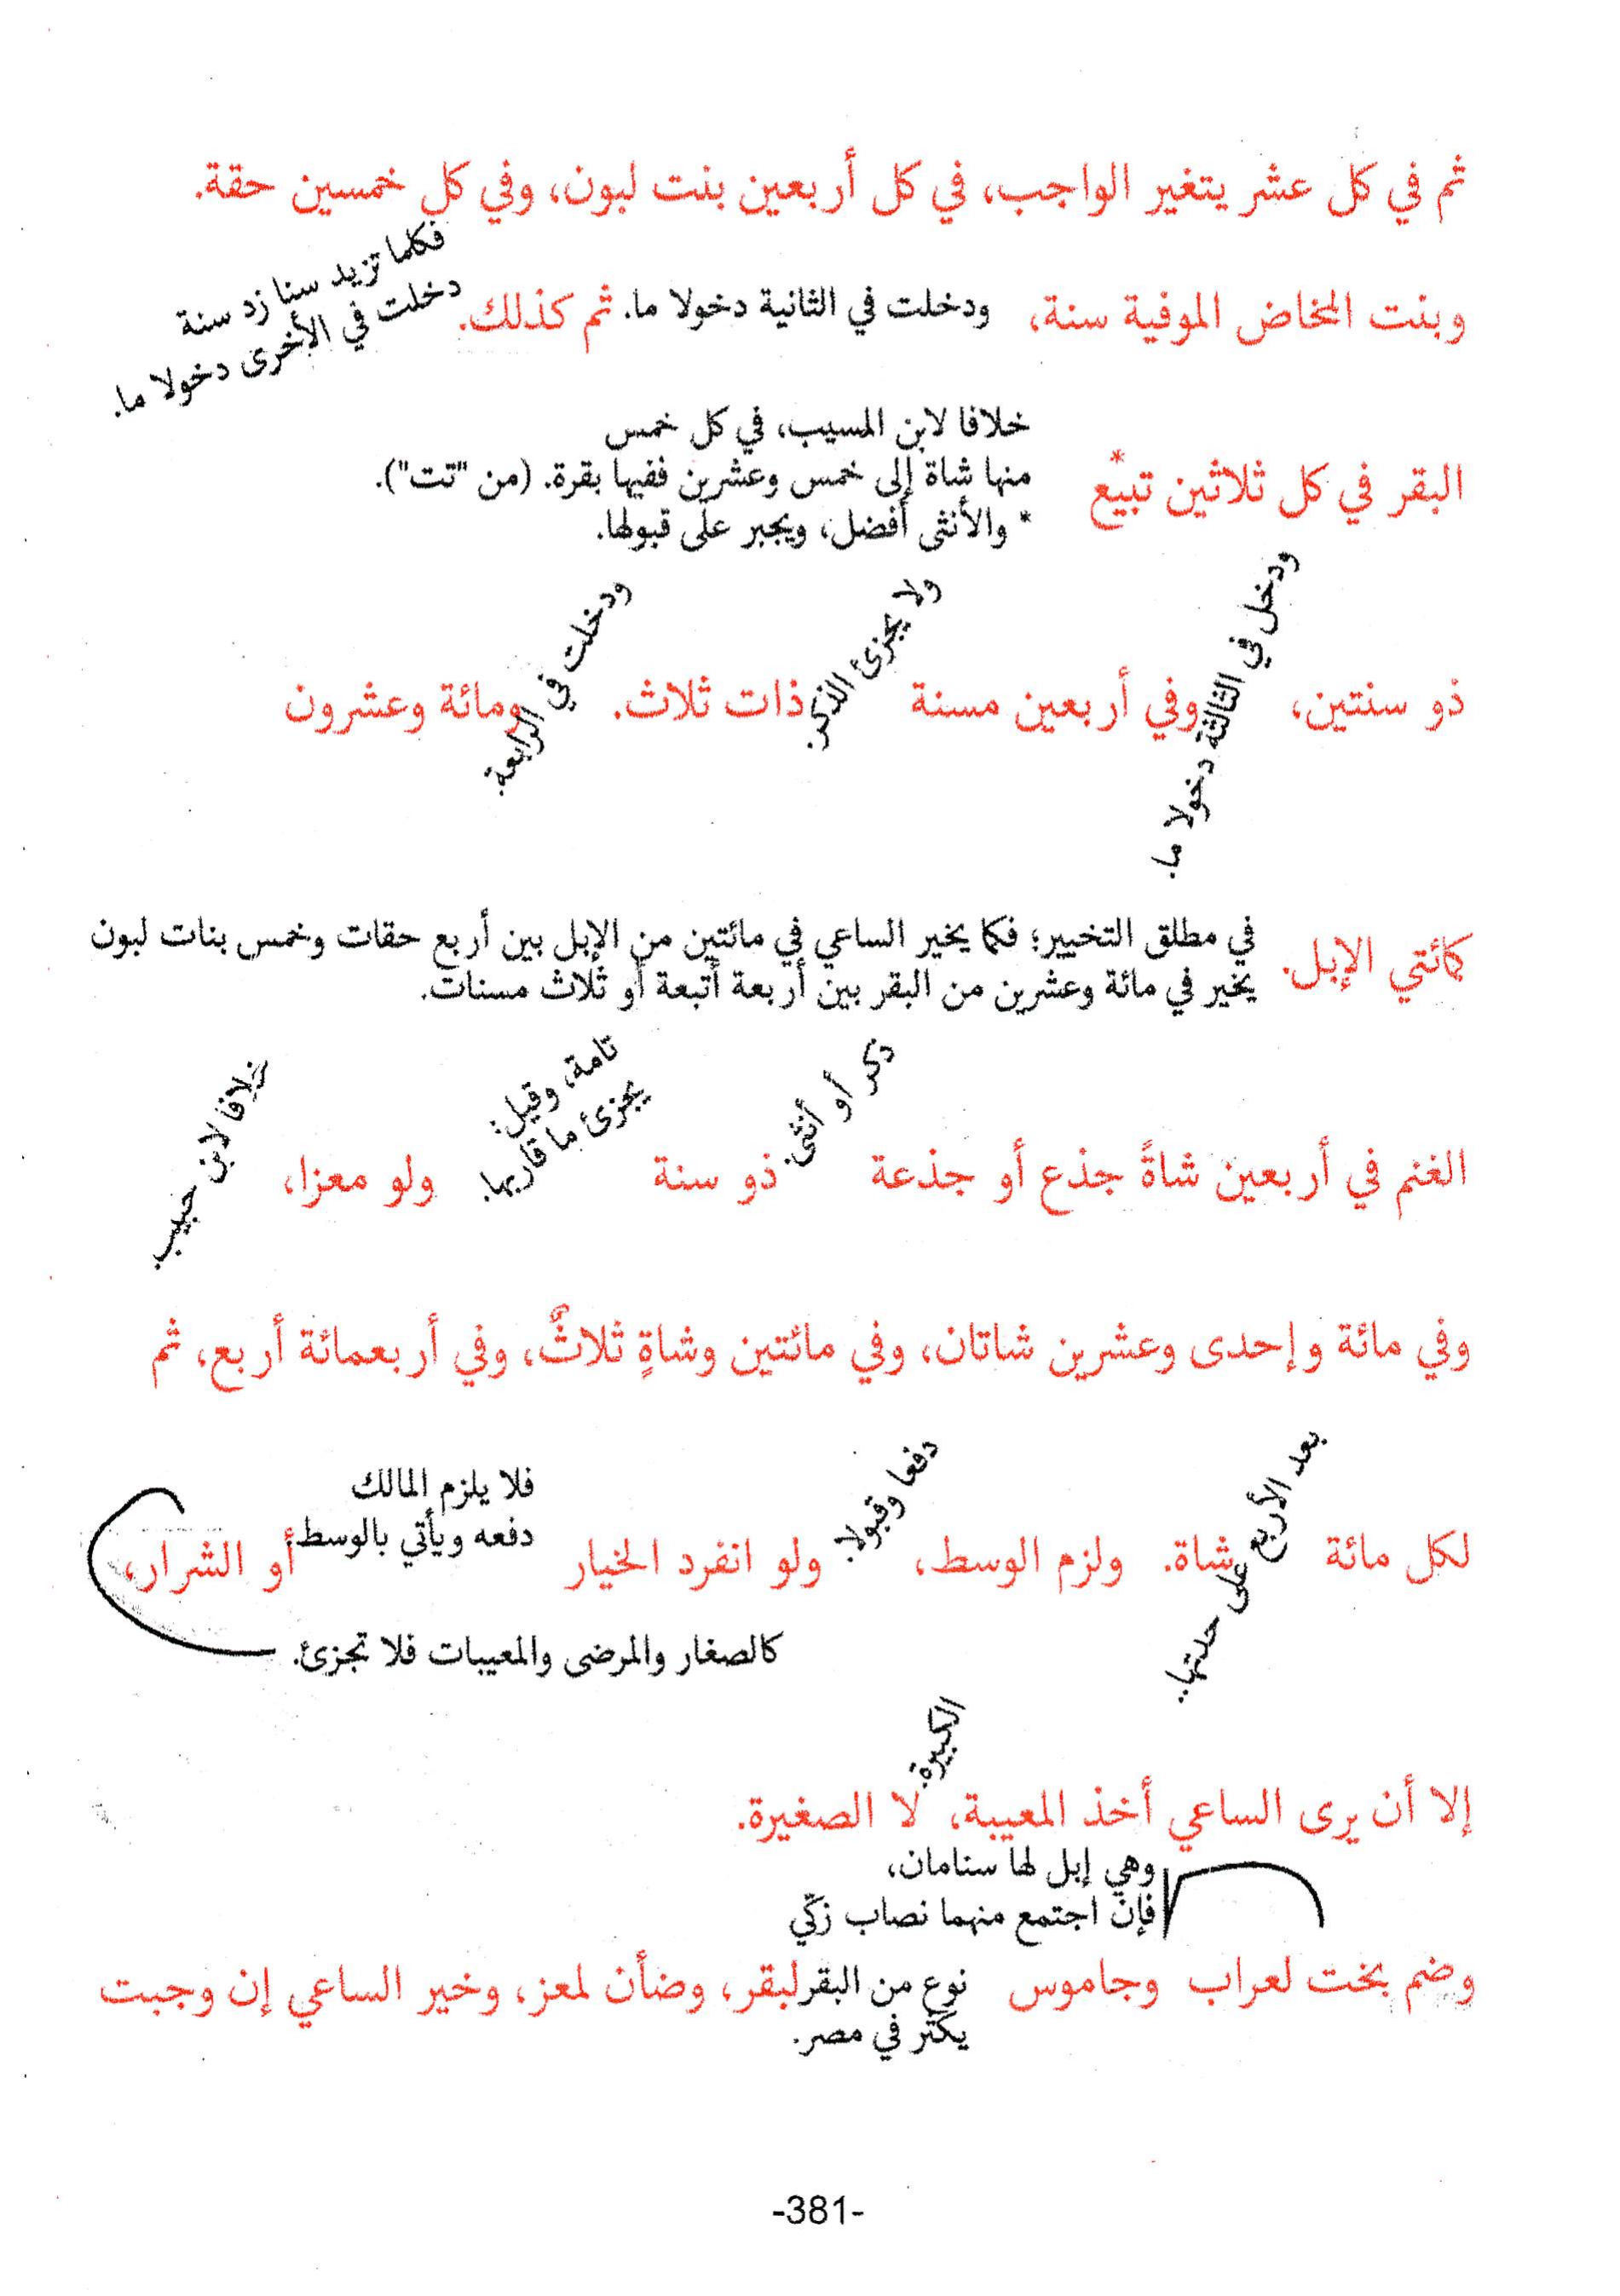 ثم في كل عشر يتغير الواجب، في كل أربعين بنت لبون، وفي كل خمسين حقة.
وبنت المخاض الموفية سنة، ودخلت في الثانية دخولا ما. ثم كذلك.
فكلما تزيد سنا زد سنة
دخلت في الأخرى دخولا ما.
البقر في كل ثلاثين تبيع*
خلافا لابن المسيب، في كل خمس
منها شاة إلى خمس وعشرين ففيها بقرة. (من "تت").
* والأنثى أفضل، ويجبر على قبولها.
ذو سنتين،
ودخل في الثالثة دخولا ما.
وفي أربعين مسنة
ولا يجزئ الذكر.
ذات ثلاث.
ودخلت في الرابعة.
ومائة وعشرون
كمائتي الإبل.
في مطلق التخيير؛ فكما يخير الساعي في مائتين من الإبل بين أربع حقات وخمس بنات لبون
يخير في مائة وعشرين من البقر بين أربعة أتبعة أو ثلاث مسنات.
الغنم في أربعين شاةً جذع أو جذعة
ذكر أو أنثى.
ذو سنة
تامة، وقيل:
يجزئ ما قاربها.
ولو معزا،
خلافا لابن حبيب
وفي مائة وإحدى وعشرين شاتان، وفي مائتين وشاةٍ ثلاثٌ، وفي أربعمائة أربع، ثم
لكل مائة
بعد الأربع على حلتها..
شاة. ولزم الوسط،
دفعا وقبولا.
ولو انفرد الخيار
فلا يلزم المالك
دفعه ويأتي بالوسط.
أو الشرار،
كالصغار والمرضى والمعيبات فلا تجزئ.
إلا أن يرى الساعي أخذ المعيبة، لا الصغيرة.
الكبيرة.
وهي إبل لها سنامان،
فإن اجتمع منهما نصاب زكّي
وضم بخت لعراب وجاموس نوع من البقر لبقر، وضأن لمعز، وخير الساعي إن وجبت
يكثر في مصر.
-381-